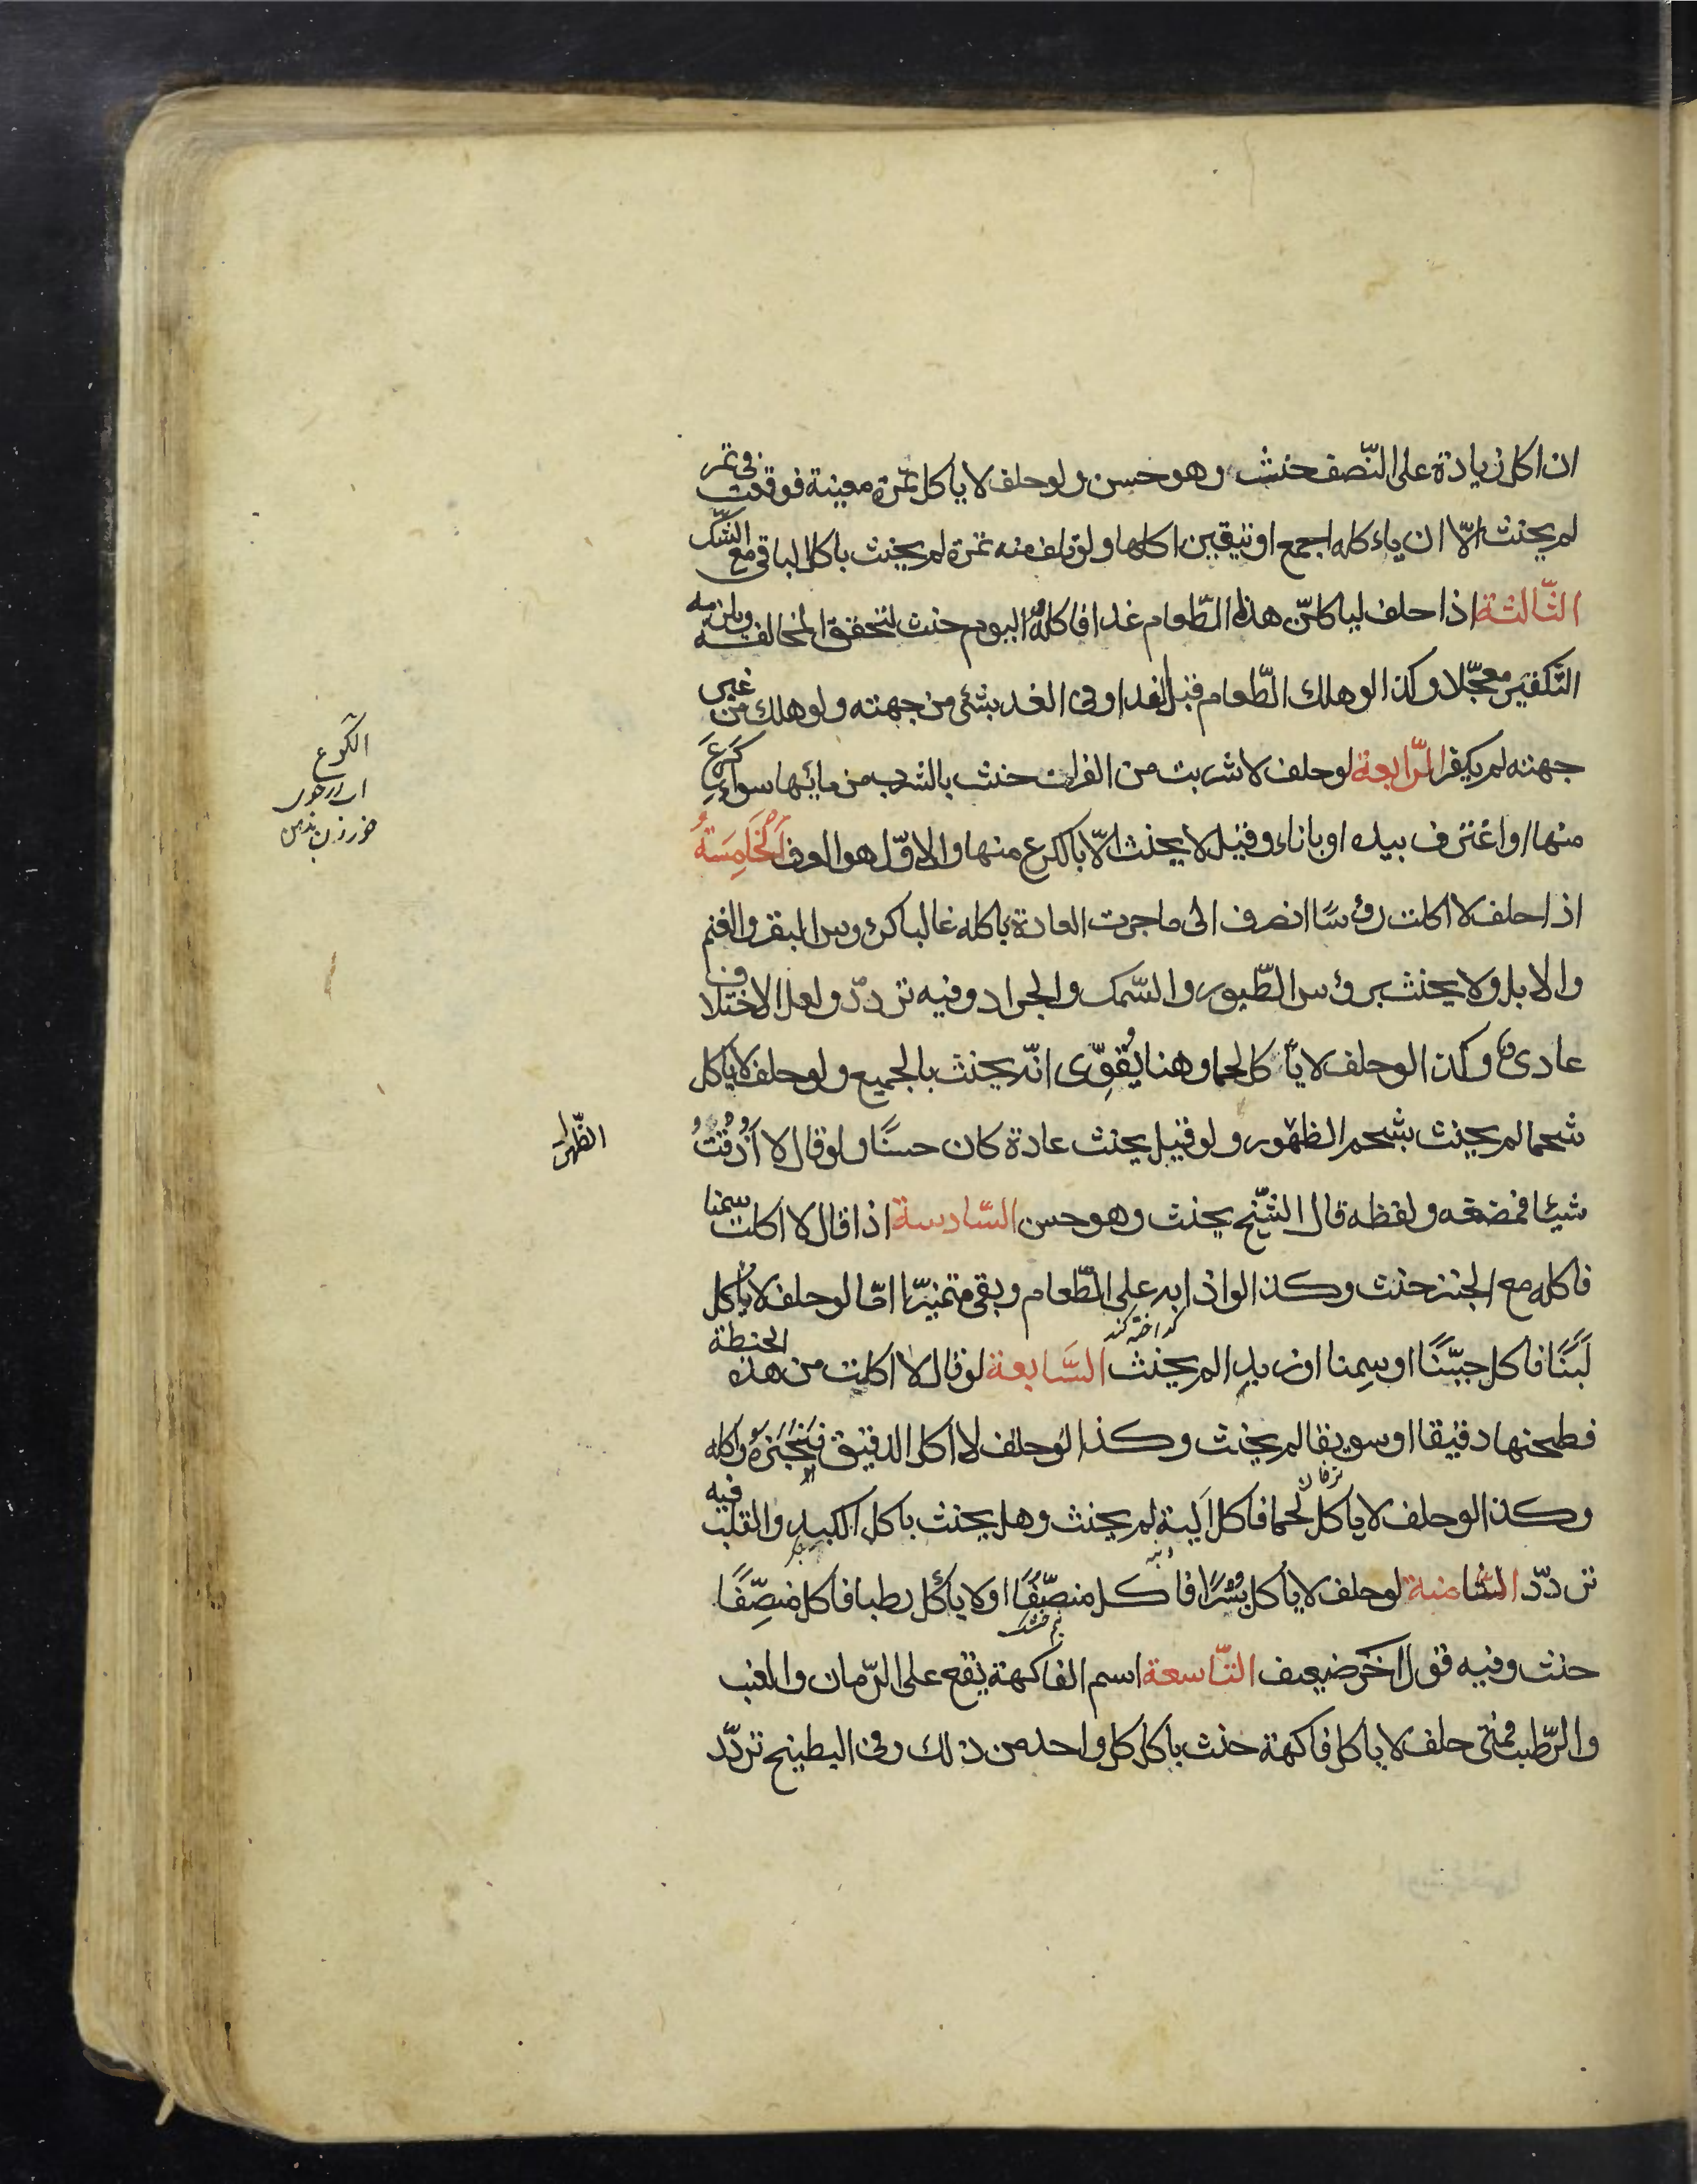 ان اكل زيادة على النّصف حنث وهو حسن ولو حلف لا ياكل تمرة معينة فوقعت فى تمر
لم يحنث الّا ان ياءكله اجمع او تيقين اكلها ولو تلف منه تمرة لم يحنث باكل الباقى مع الشّك
الثّالثة اذا حلف لياكلنّ هذا الطّعام غدا فاكله اليوم حنث لتحقق المخالفة ويلزمه
التّكفير معجّلا وكذا لو هلك الطّعام قبل الغد او فى الغد بشئ من جهته ولو هلك من غير
جهته لم يكفر الرّابعة لو حلف لا شربت من الفرات حنث بالشرب من مائها سواء كَرَعَ
منها او اغترف بيده او باناء وقيل لا يحنث الّا بالكرع منها والاوّل هو العرف الخَامِسَةُ
اذا حلف لا اكلت رؤسًا انصرف الى ما جرت العادة باكله غالبا كرؤس البقر والغنم
والابل ولا يحنث برؤس الطّيور والسّمك والجراد وفيه تردّد ولعل الاختلاف
عادى وكذا لو حلف لا ياكل لحما وهنا يُقوِّى انّه يحنث بالجميع ولو حلف لا ياكل
شحما لم يحنث بشحم الظهور ولو قيل يحنث عادة كان حسنًا ولو قال لا ذُقْتُ
شيئا فمضغه ولفظه قال الشّيخ يحنث وهو حسن السّادسة اذا قال لا اكلت سمنا
فاكله مع الخبز حنث وكذا لو اذابه على الطّعام وبقى متميّزا امّا لو حلف لا ياكل
كداخته كند
لَبَنًا فاكل جبنًّا او سِمنا او زبدا لم يحنث السَّابعة لو قال لا اكلت من هذه الحنطة
فطحنها دقيقا او سويقا لم يحنث وكذا لو حلف لا اكل الدقيق فخبزه واكله
وكذا لو حلف لا ياكل لحما فاكل اَلية لم يحنث وهل يحنث باكل الكبد والقلب فيه
دنبه
تردّد الثّامنة لو حلف لا ياكل بُسْرًا فاكل منصّفًا او لا ياكل رطبا فاكل منصِّفًا
حنث وفيه قول اخر ضعيف التّاسعة اسم الفاكهة يقع على الرّمان والعنب
والرّطب فمتى حلف لا ياكل فاكهة حنث باكل كل واحد من ذلك وفى البطيخ تردّد
الكرع
خوردن بدهن
الظهر